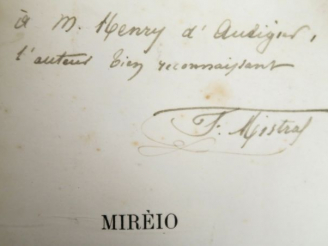 à M. Henry d'Audigier,
l'auteur bien reconnaissant
F. Mistral
MIRÈIO